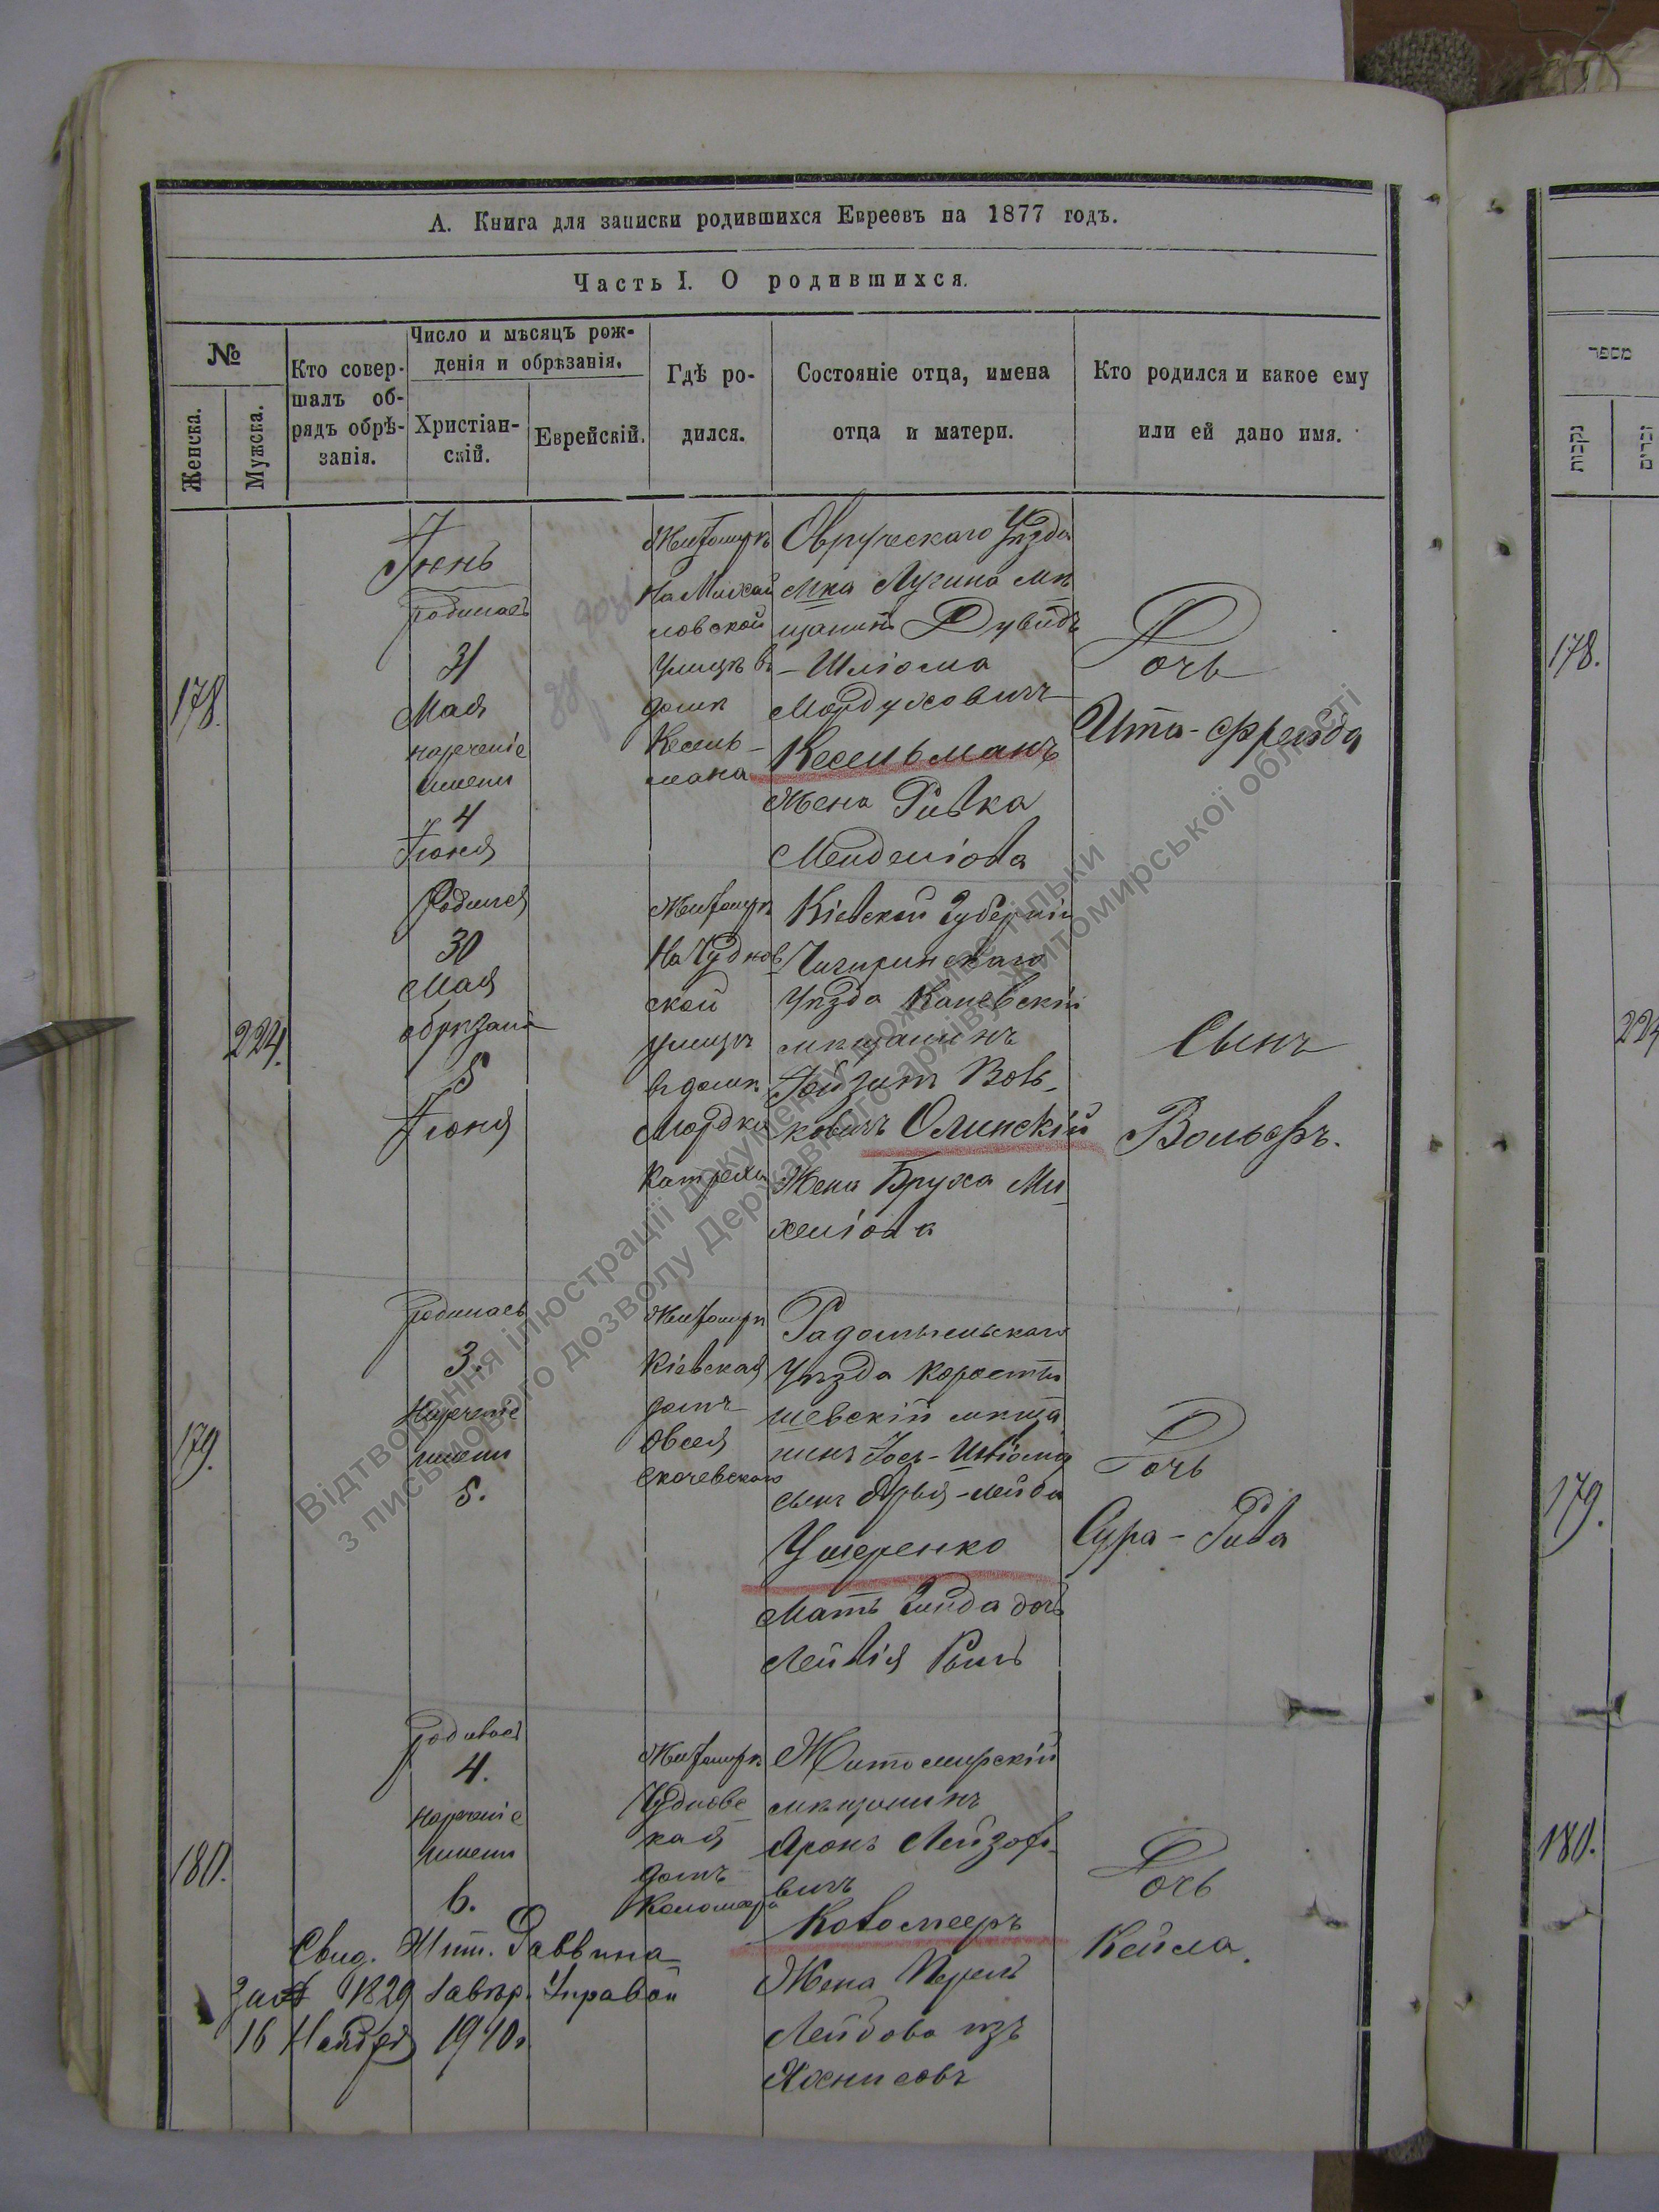 А. Книга для записки родившихся Евреевъ на 1877 годъ.
Часть I. О родившихся.
№
Женска.
Мужска.
Кто совер-
шалъ об-
рядъ обрѣ-
занія.
Число и мѣсяцъ рож-
денія и обрѣзанія.
Христіан-
скій.
Еврейскій.
Гдѣ ро-
дился.
Состояніе отца, имена
отца и матери.
Кто родился и какое ему
или ей дано имя.
178.
Іюнь
родилась
31
Мая
нареченіе
имени
4
Іюня
Житомиръ
На Михай
ловской
улицѣ въ
домѣ
Кесель-
мана
Овручскаго Уѣзда
м-ка Лугина мѣ
щанинъ Дувидъ
-Шліома
Мордуховичъ
Кесельманъ
Жена Ривка
Менделіова
Дочь
Ита-Фрейда
224.
Родился
30
Мая
обрѣзанъ
5
Іюня
Житомиръ
На Чуднов
ской
улицѣ
въ домѣ
Мордка
Кіевской Губерніи
Чигиринскаго
Уѣзда Каневскій
мѣщанинъ
Вов-
ковичъ Олинскій
Жена Бруха Ми-
хеліова
Сынъ
Вольфъ.
179.
родилась
3.
Нареченіе
имени
5.
Житомиръ
Кіевская
домъ
Овсея
Скочевскаго
Радомысльскаго
Уѣзда Корости
шевскій мѣща
нинъ Іось-Шліома
сынъ Арья-Лейба
Ушеренко
Мать Гинда дочь
Дочь
Сура-Рива
180.
родилась
4.
нареченіе
имени
6.
Житомиръ
Чудновс
кая
домъ
Житомирскій
мѣщанинъ
Аронъ Лейзоро-
вичъ
Коломееръ
Жена Перель
Лейбова изъ
Дочь
Кейла.
Свид. Жит. Раввина
за № 1829 завѣр. Управой
16 Ноября 1910г.
מספר
נקבות
זכרים
178.
224
179.
180.
Відтворення ілюстрації документу можливе тільки
з письмового дозволу Державного архіву Житомирської області